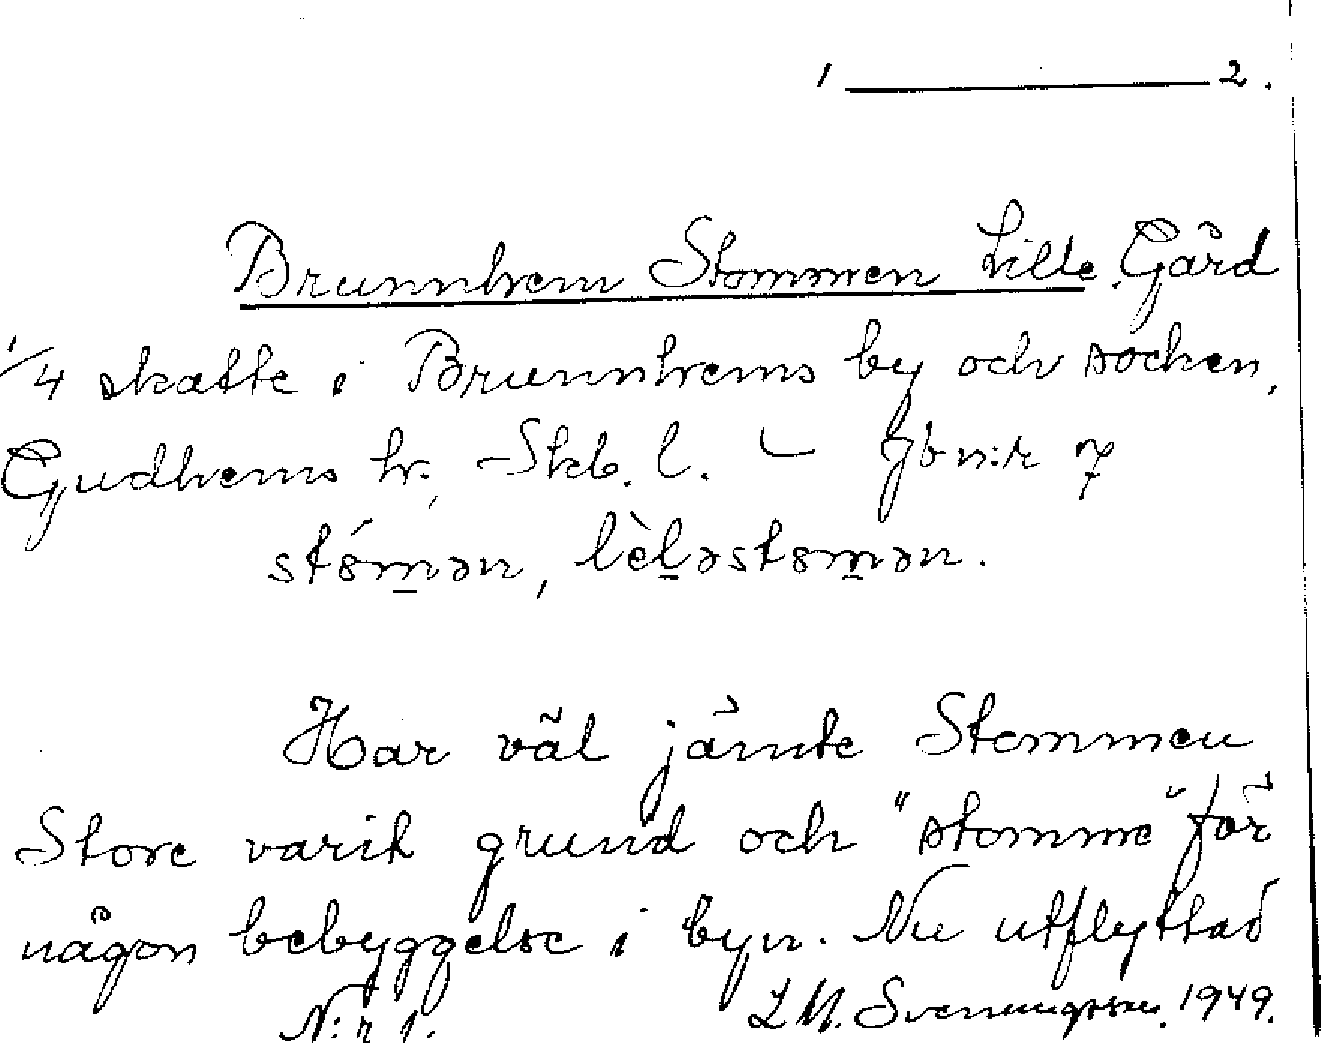 1 ——— 2.
Brunnhem Stommen Lille. Gård
1/4 skatte i Brunnhems by och socken,
Gudhems hr., Skb. l. – Jb n:r 7
stó̀mən, lèləstomən.
Har väl jämte Stommen
Store varit grund och "stomme" för
någon bebyggelse i byn. Nu utflyttad
N:r 1. L M. Svenungsson. 1949.